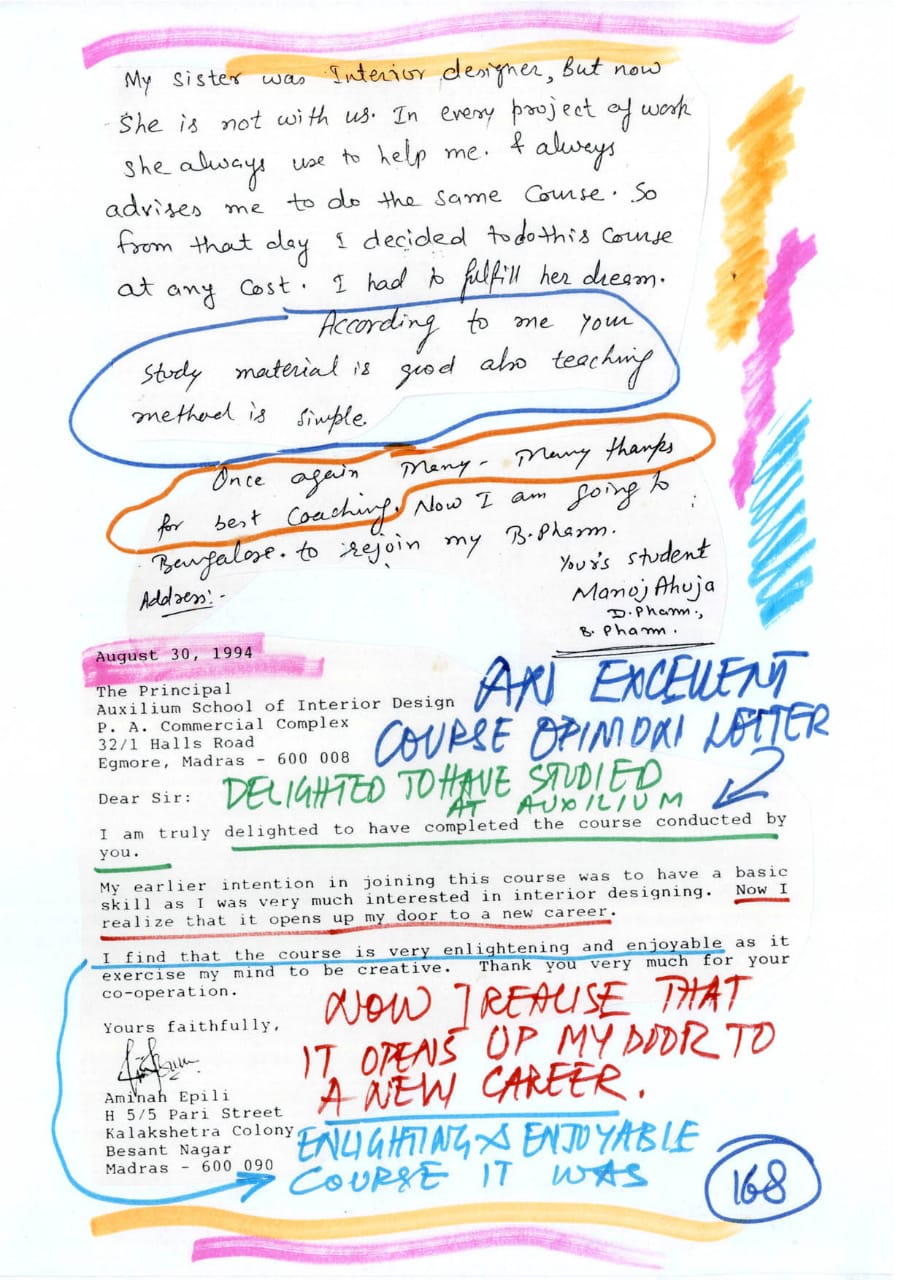 My Sister was Interior designer, But now
She is not with us. In every project of work
she always use to help me. & always
advises me to do the same Course. So
from that day I decided to do this Course
at any Cost. I had to fulfill her dream.
According to me your
study material is good also teaching
method is simple.
Once again Many - Many thanks
for best Coaching. Now I am going to
Bengalore. to rejoin my B.Pharm.
Your's student
Address:-
Manoj Ahuja
D.Pharm.,
B. Pharm.
August 30, 1994
AN EXCELLENT
COURSE OPINION LETTER
The Principal
Auxilium School of Interior Design
P. A. Commercial Complex
32/1 Halls Road
Egmore, Madras - 600 008
DELIGHTED TO HAVE STUDIED
AT AUXILIUM
Dear Sir:
I am truly delighted to have completed the course conducted by
you.
My earlier intention in joining this course was to have a basic
skill as I was very much interested in interior designing. Now I
realize that it opens up my door to a new career.
I find that the course is very enlightening and enjoyable as it
exercise my mind to be creative. Thank you very much for your
co-operation.
NOW I REALISE THAT
IT OPENS UP MY DOOR TO
A NEW CAREER.
Yours faithfully,
Aminah Epili
H 5/5 Pari Street
Kalakshetra Colony
Besant Nagar
Madras - 600 090
ENLIGHTING & ENJOYABLE
COURSE IT WAS
168